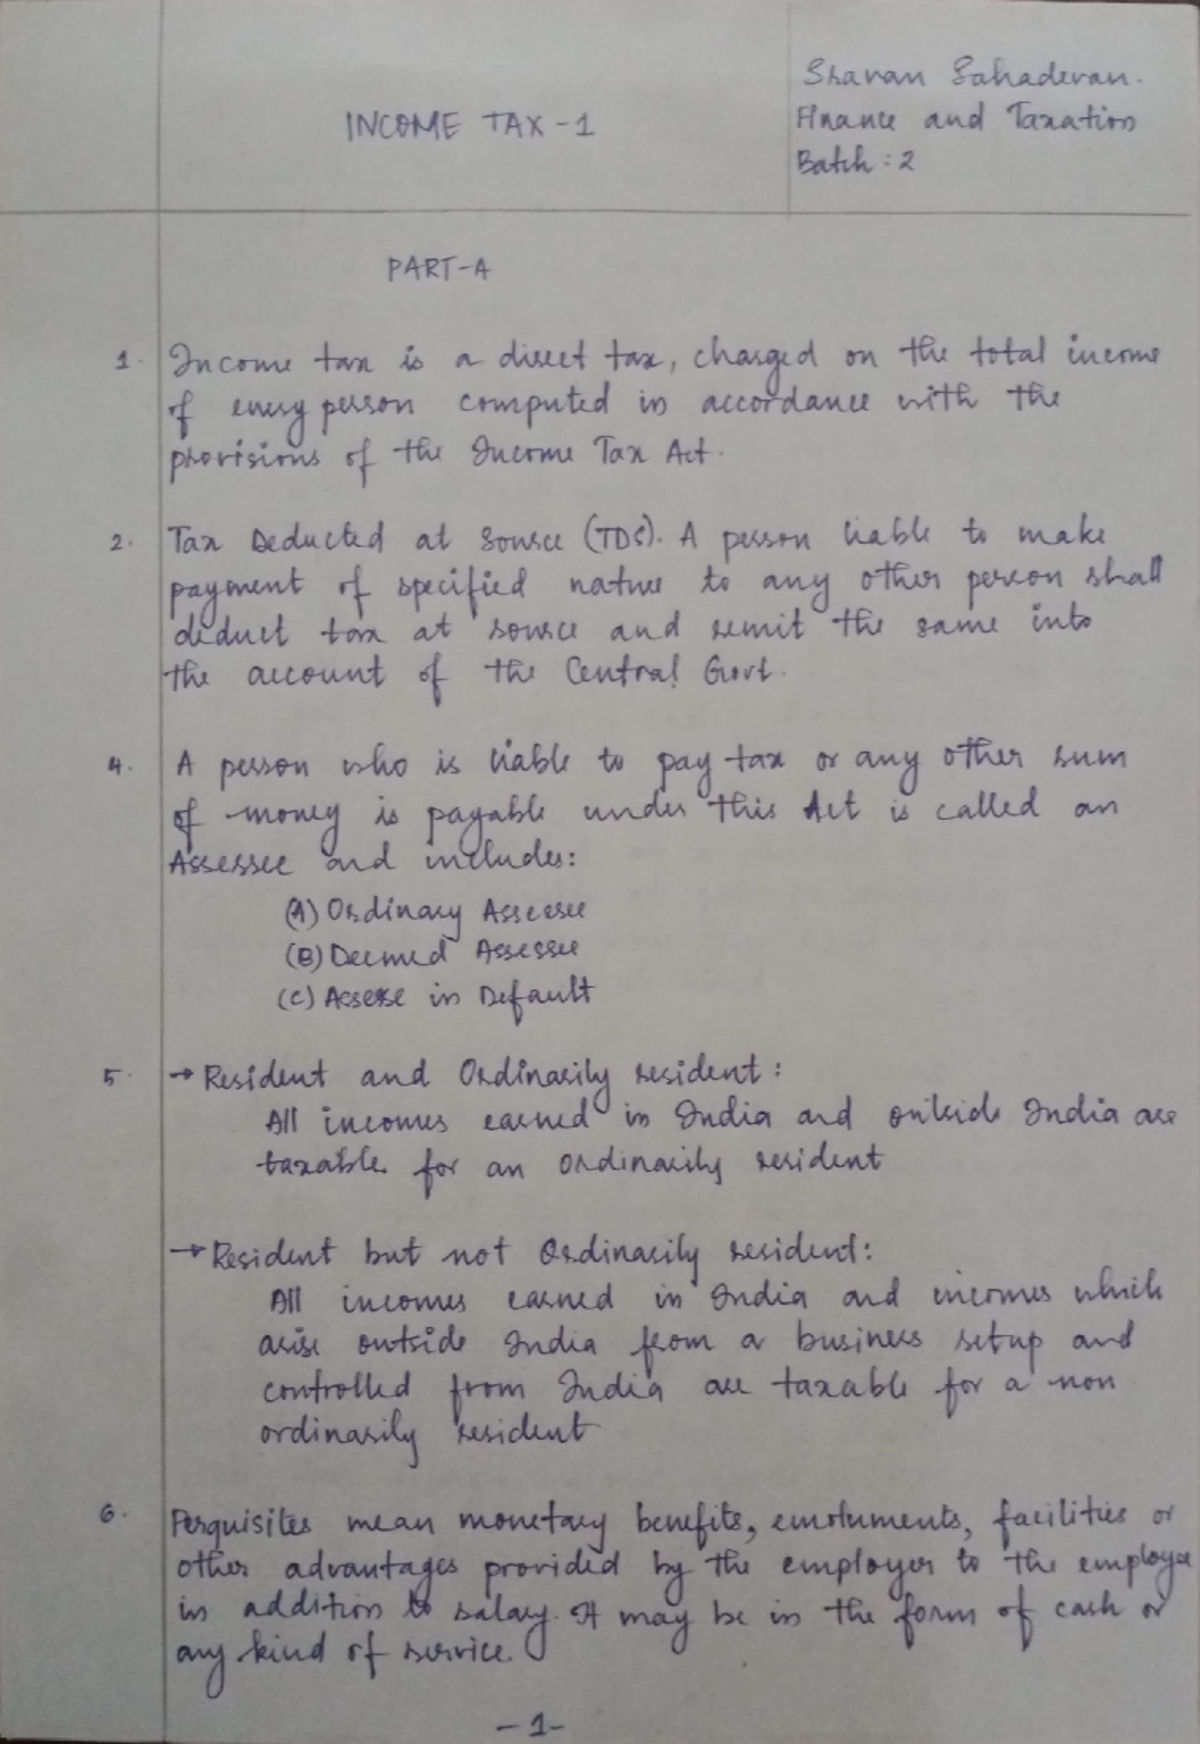 INCOME TAX -1
Sharan Sahadevan.
Finance and Taxation
Batch : 2
PART-A
1. Income tax is a direct tax, charged on the total income
of every person computed in accordance with the
provisions of the Income Tax Act.
2. Tax Deducted at Source (TDS). A person liable to make
payment of specified nature to any other person shall
deduct tax at source and remit the same into
the account of the Central Govt.
4. A person who is liable to pay tax or any other sum
of money is payable under this Act is called an
Assessee and includes:
(A) Ordinary Assessee
(B) Deemed Assessee
(C) Assesse in Default
5. → Resident and Ordinarily resident :
All incomes earned in India and outside India are
taxable for an ordinarily resident
→ Resident but not Ordinarily resident:
All incomes earned in India and incomes which
arise outside India from a business setup and
controlled from India are taxable for a non
ordinarily resident
6. Perquisites mean monetary benefits, emoluments, facilities or
other advantages provided by the employer to the employee
in addition to salary. It may be in the form of cash or
any kind of service.
-1-